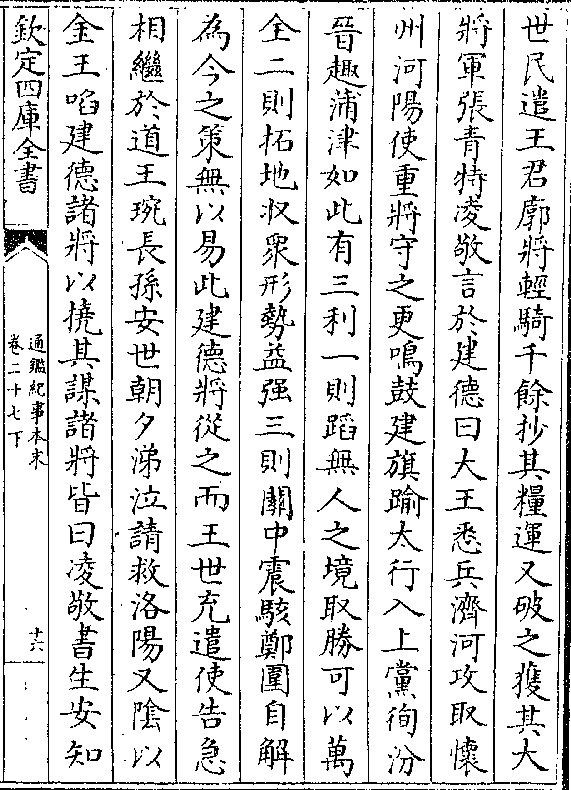 世民遣王君廓將輕騎千餘抄其糧運又破之獲其大
將軍張青特凌敬言於建德曰大王悉兵濟河攻取懷
州河陽使重將守之更鳴鼓建旗踰太行入上黨徇汾
晉趣蒲津如此有三利一則蹈無人之境取勝可以萬
全二則拓地收衆形勢益强三則關中震駭鄭圍自解
為今之策無以易此建德將從之而王世充遣使告急
相繼於道王琬長孫安世朝夕涕泣請救洛陽又隂以
金玉啗建德諸將以撓其謀諸將皆曰凌敬書生安知
欽定四庫全書
通鑑紀事本末
卷二十七下
十六